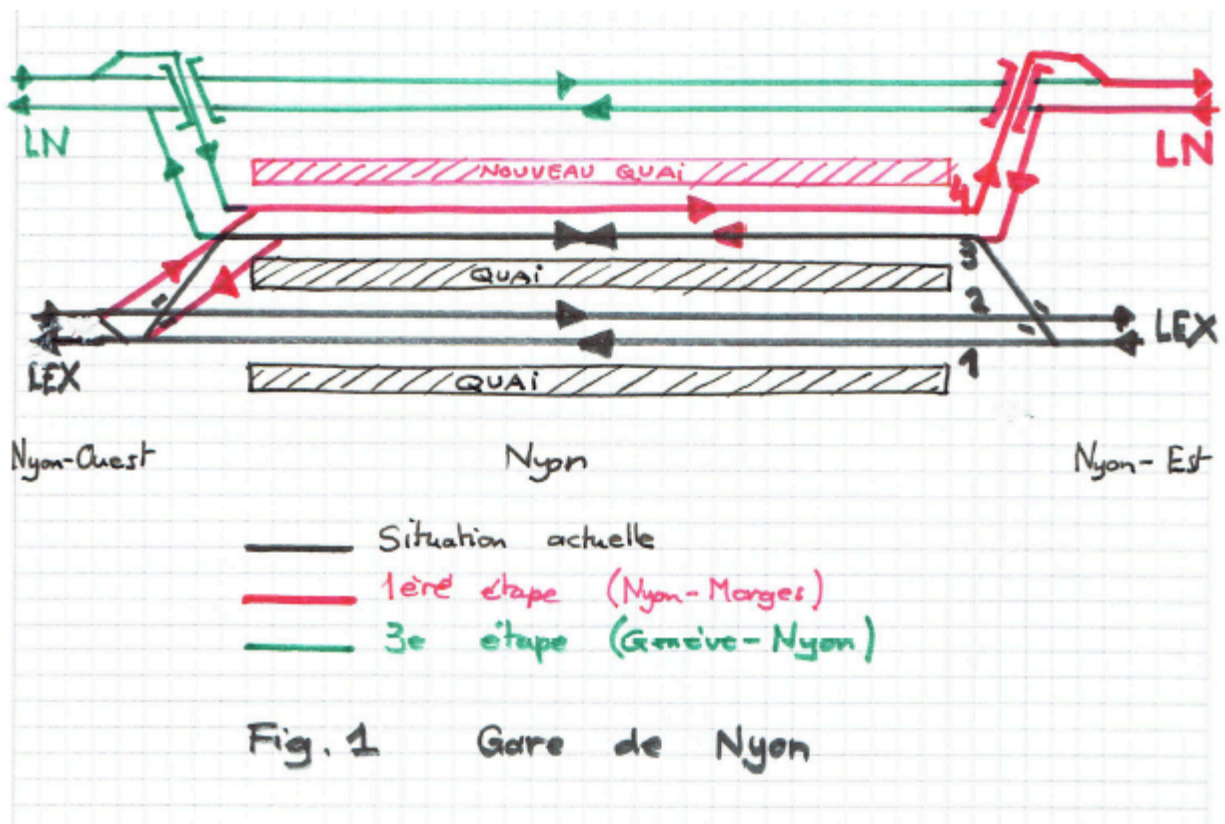 LN
LN
NOUVEAU QUAi
4
QUAi
3
2
LEX
LEX
1
QUAi
Nyon-Ouest
Nyon
Nyon-Est
Situation actuelle
1èré étape (Nyon-Morges)
3e étape (Genève-Nyon)
Fig. 1 Gare de Nyon